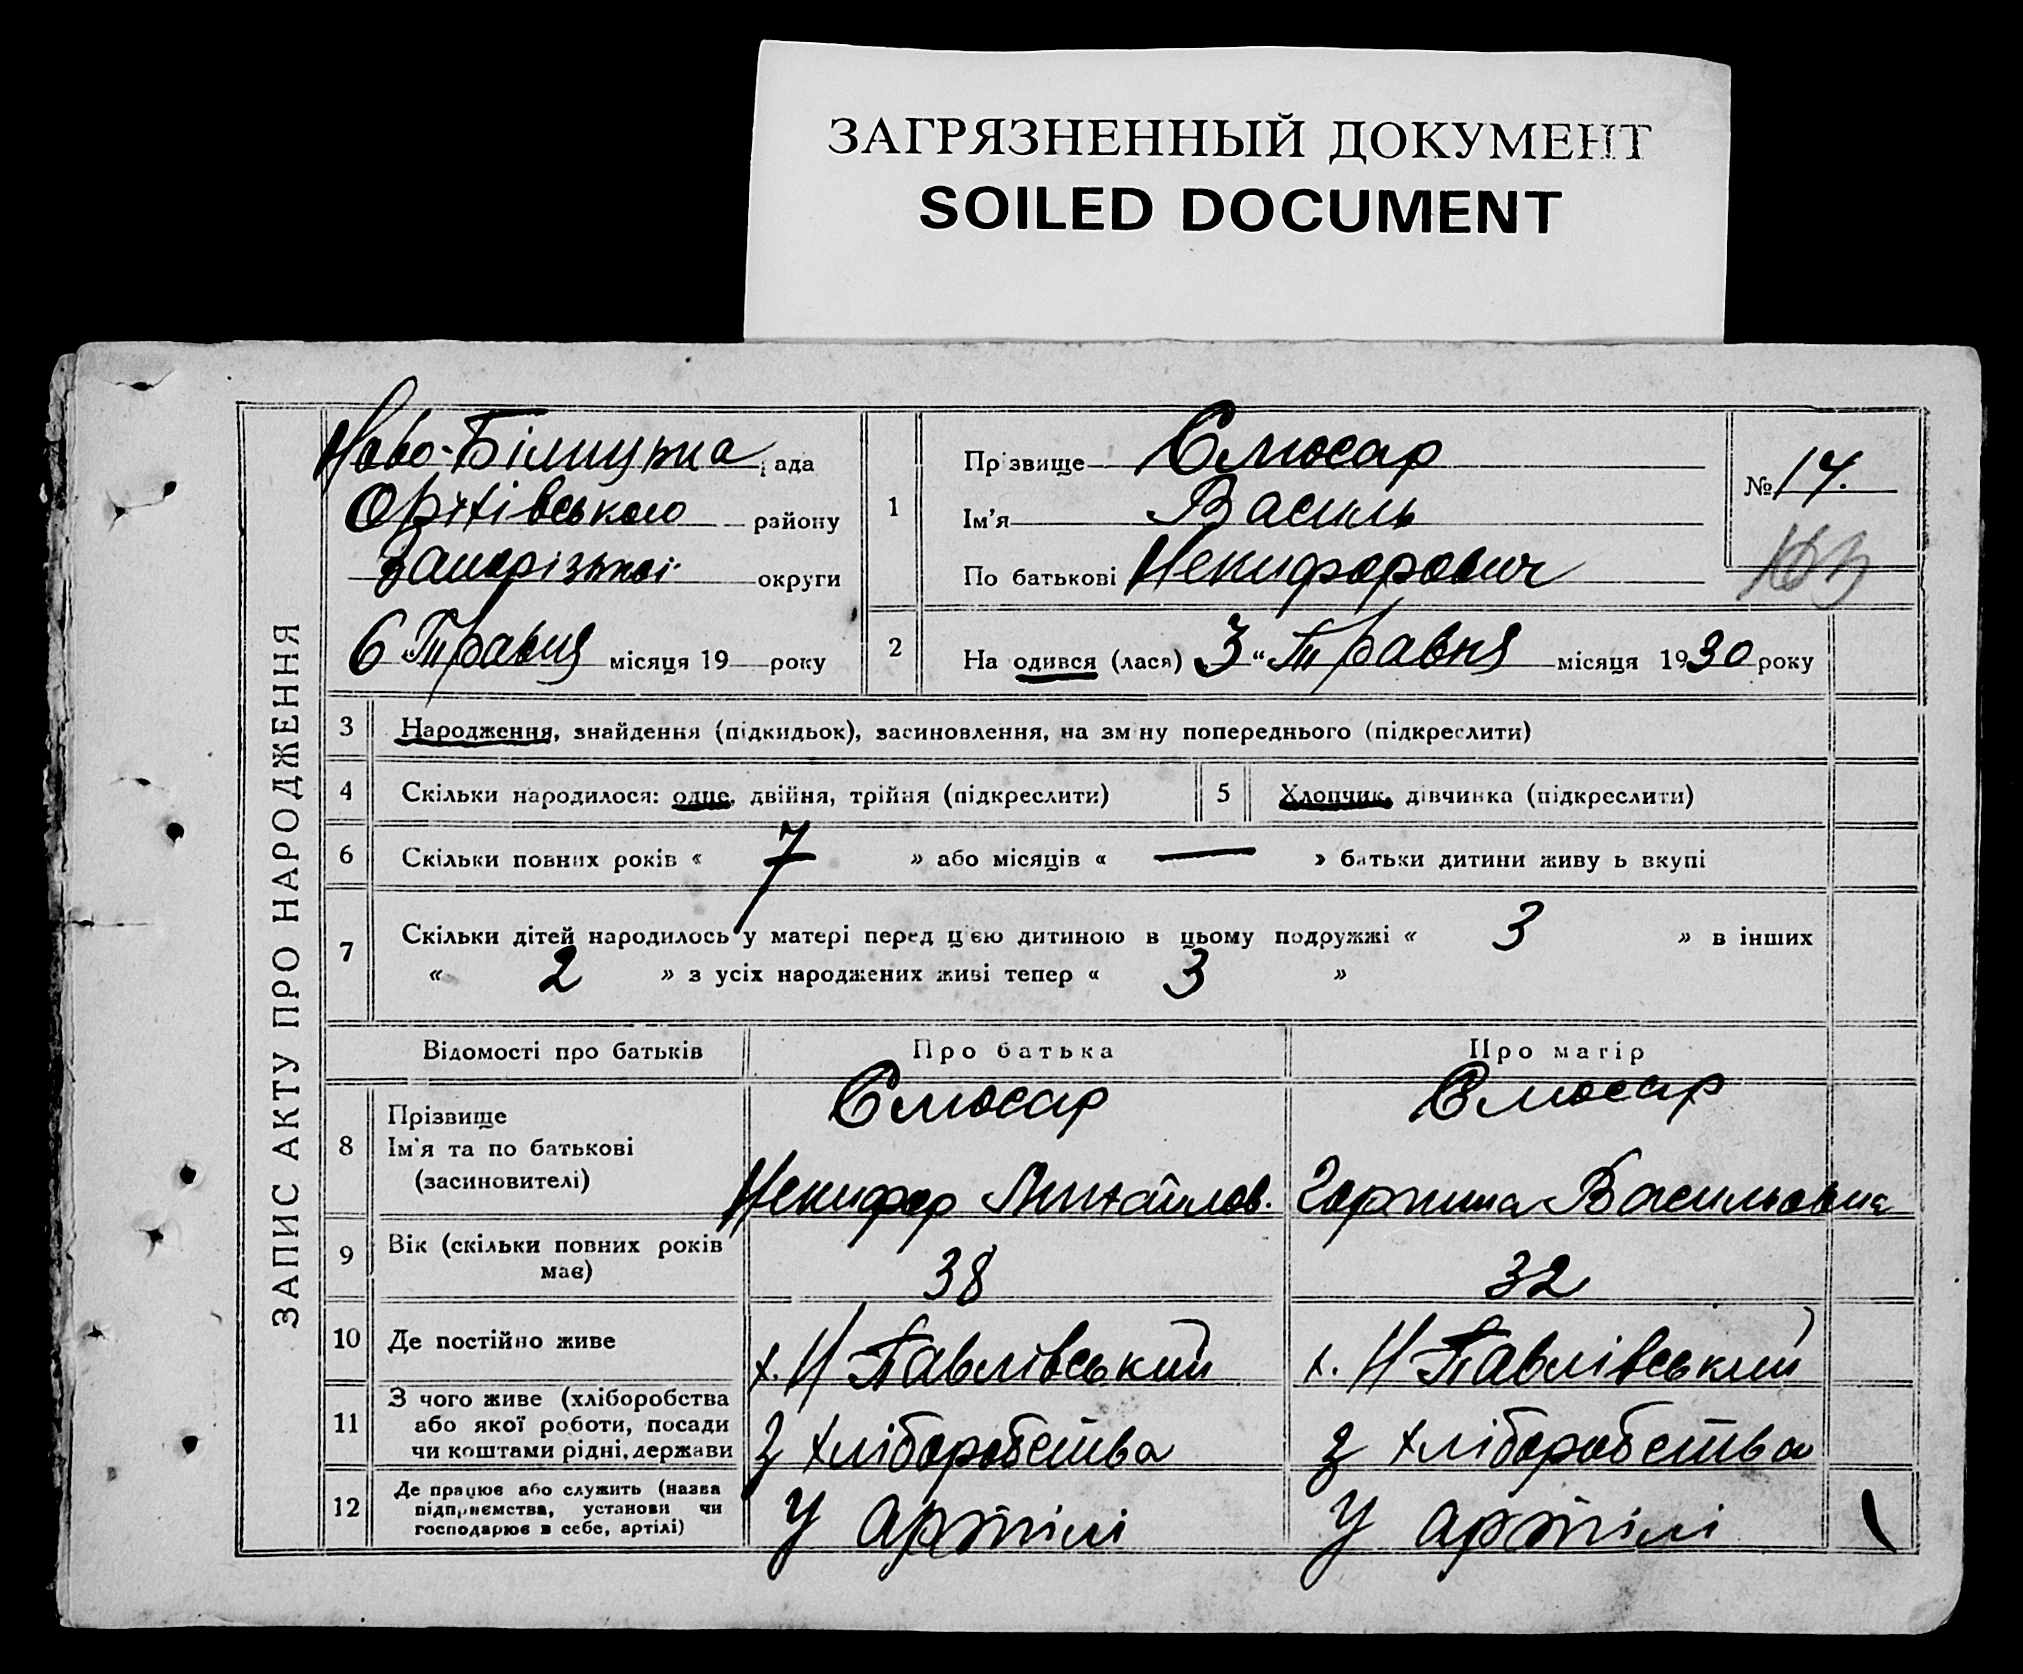 ЗАГРЯЗНЕННЫЙ ДОКУМЕНТ
SOILED DOCUMENT
ЗАПИС АКТУ ПРО НАРОДЖЕННЯ
рада
Оріхівського району
Запорізької округи
6 Травня місяця 19 року
1
Прізвище Слюсар
Ім'я Василь
По батькові Некифорович
№ 14.
2
На одився (лася) „3“ Травня місяця 1930 року
3 Народження, знайдення (підкидьок), засиновлення, на зміну попереднього (підкреслити)
4 Скільки народилося: одне, двійня, трійня (підкреслити)
5 Хлопчик, дівчинка (підкреслити)
6 Скільки повних років « 7 » або місяців « — » батьки дитини живу ь вкупі
7 Скільки дітей народилось у матері перед цією дитиною в цьому подружжі « 3 » в інших
« 2 » з усіх народжених живі тепер « 3 »
Відомості про батьків Про батька Про матір
8 Прізвище
Ім'я та по батькові
(засиновителі)
Слюсар
Некифор Михайлов.
Слюсар
Горпина Васильовна
9 Вік (скільки повних років
має)
38 32
10 Де постійно живе х. Н Павлівський х. Н Павлівський
11 З чого живе (хліборобства
або якої роботи, посади
чи коштами рідні, держави
З хліборобства З хліборобства
12 Де працює або служить (назва
підприємства, установи чи
господарює в себе, артілі)
У артілі У артілі